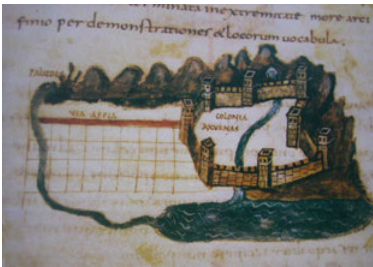 inextremitate more arci
finio per demonstrationes & locorum uocabula.
PALVDES
VIA APPIA
COLONIA
AXVRNAS